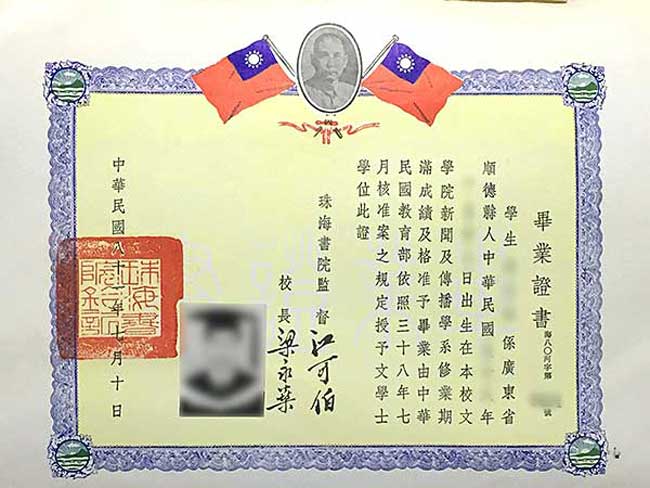 畢業證書
海八〇河字第 號
學生 係廣東省
順德縣人中華民國 年
日出生在本校文
學院新聞及傳播學系修業期
滿成績及格准予畢業由中華
民國教育部依照三十八年七
月核准案之規定授予文學士
學位此證
珠海書院監督 江可伯
校長 梁永燊
中華民國八十二年七月十日